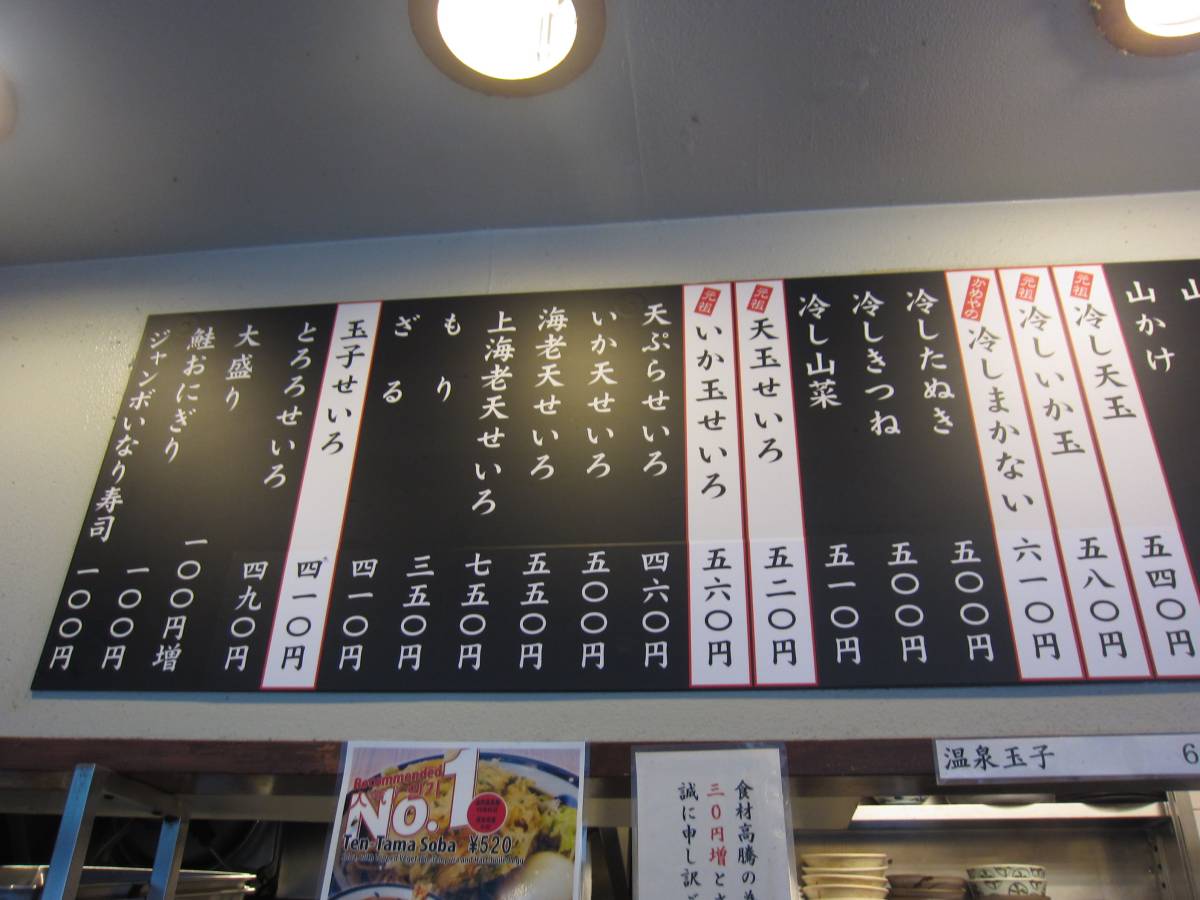 山かけ
元祖 冷し天玉 五四〇円
元祖 冷しいか玉 五八〇円
かめやの 冷しまかない 六一〇円
冷したぬき 五〇〇円
冷しきつね 五〇〇円
冷し山菜 五一〇円
元祖 天玉せいろ 五二〇円
元祖 いか玉せいろ 五六〇円
天ぷらせいろ 四六〇円
いか天せいろ 五〇〇円
海老天せいろ 五五〇円
上海老天せいろ 七五〇円
もり 三五〇円
ざる 四一〇円
玉子せいろ 四一〇円
とろろせいろ 四九〇円
大盛り 一〇〇円増
鮭おにぎり 一〇〇円
ジャンボいなり寿司 一〇〇円
Recommended
No.1
Ten-Tama Soba ¥520
食材高騰の
三〇円増と
誠に申し訳
温泉玉子 6